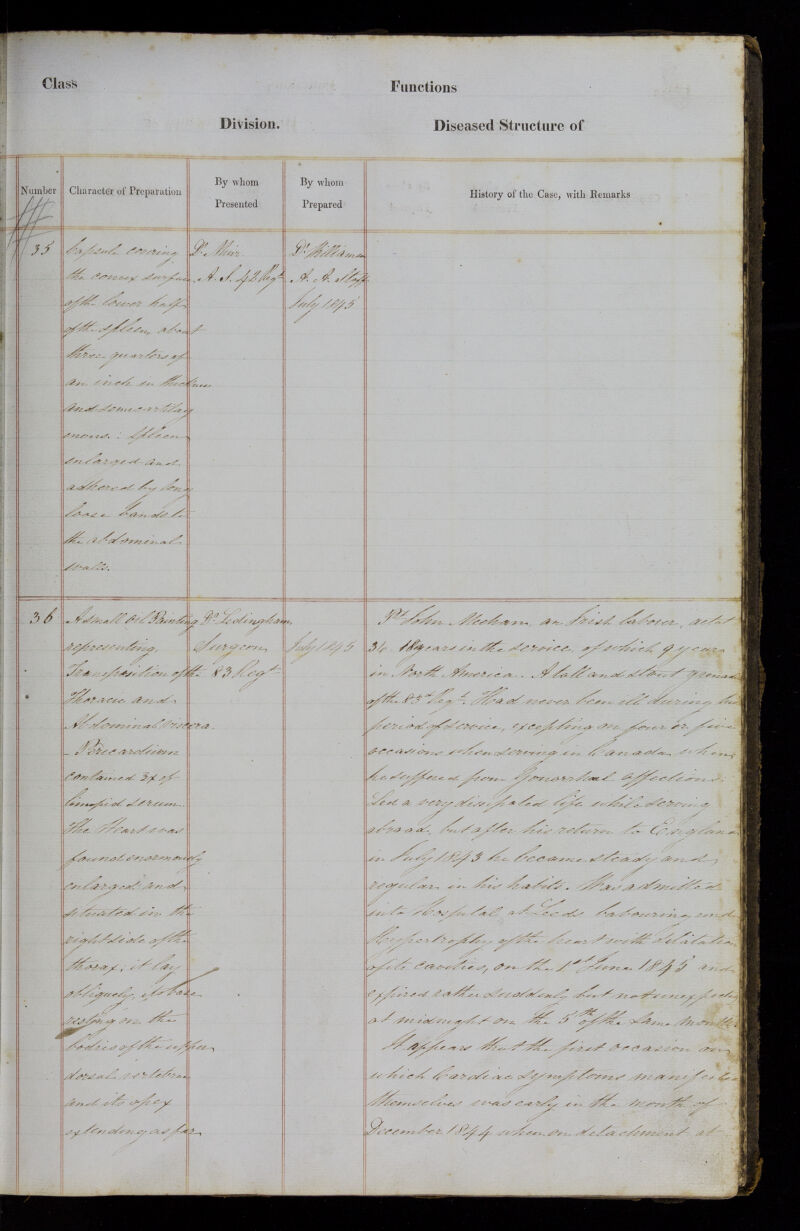 Class
Functions
Division.
Diseased Structure of
Number
Character of Preparation
By whom
Presented
By whom
Prepared
History of the Case, with Remarks
35
Capsule covering
the convex surface
of the lower half
of the spleen, about
three quarters of
an inch in thickness
and semicartilag
enous. : Spleen
enlarged and
adhered by long
loose bands to
the abdominal
walls.
Dr. Muir
A. S. 42 Regt
Dr Williamson
A. A. Staff
July 1845
36
A small Oil Painting
representing
Transposition of the
Thoracic and
Abdominal Viscera.
- Pericardium
contained ʒx of
limpid serum.
The Heart was
found enormously
enlarged and
situated in the
right side of the
thorax; it lay
obliquely, its base
resting on the
bodies of the upper
dorsal vertebrae
and its apex
extending as far
Dr. Ledingham
Surgeon
83 Regt
July 1845
Pt. John Meeham, an Irish laborer, aetat
34. 18 years in the service, of which 9 years
in North America. A tall and stout grenad
of the 83d Regt. Had never been ill during his
period of service, excepting on four or five
occasions when serving in Canada when
he suffered from Gonorrhal affections.
Led a very dissipated life while serving
abroad, but after his return to England
in July 1843 he became steady and
regular in his habits. Was admitted
into Hospital at Leeds labouring und
Hypertrophy of the heart with dilatation
of its cavities, on the 1st June 1845 and
expired rather suddenly but not unexpectedly
at midnight on the 5th of the same month
It appears that the first occasion on
which Cardiac symptoms manifested
themselves was early in the month of
December 1844 when on detachment at